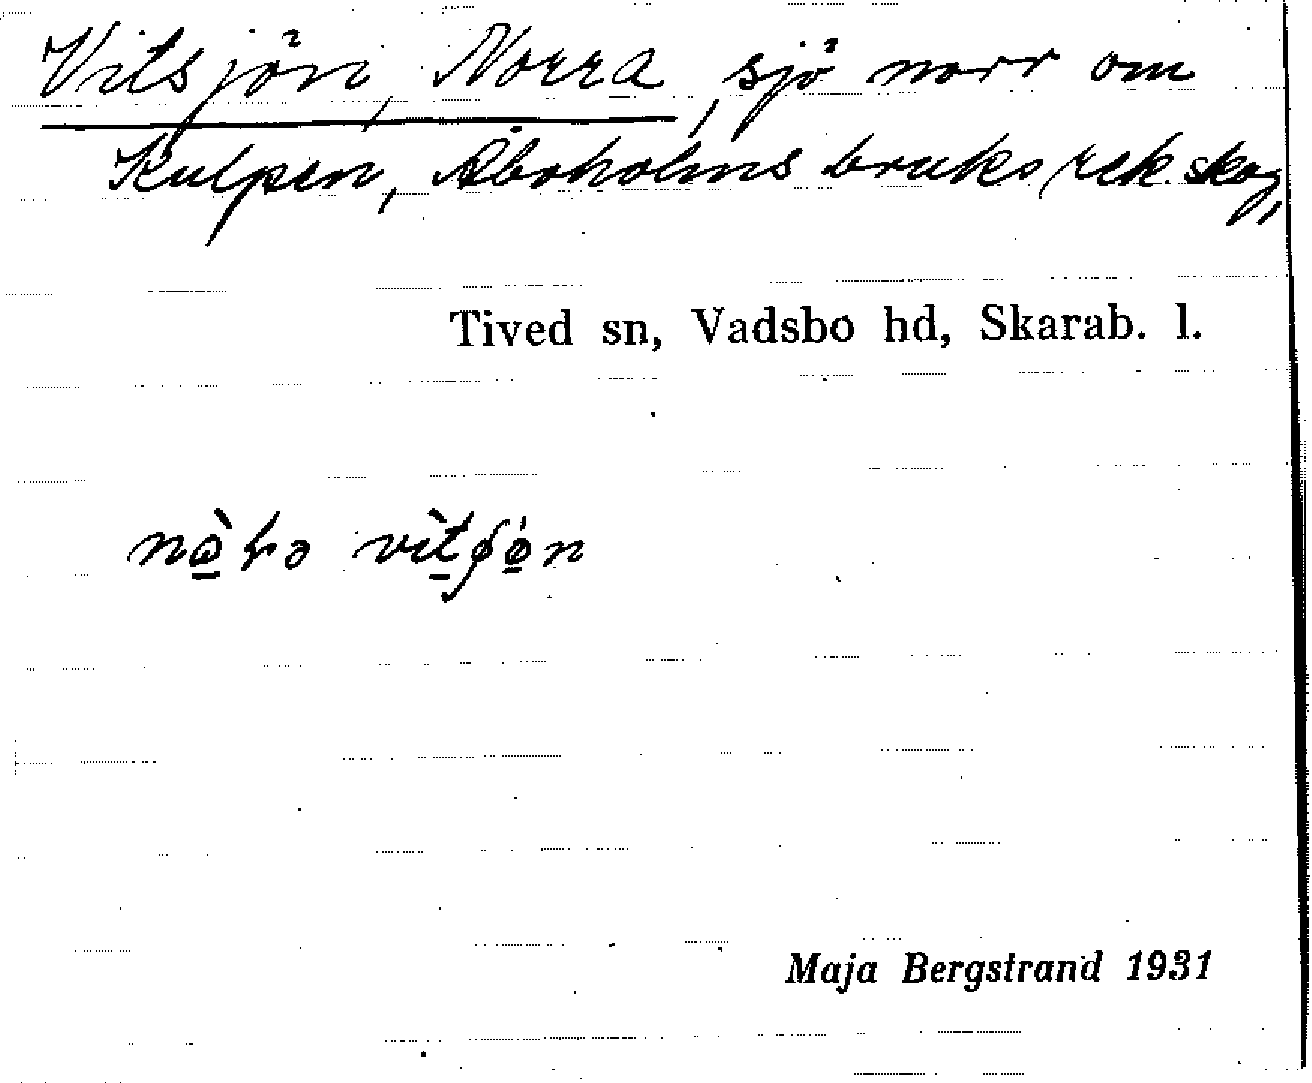 Vitsjön, Norra, sjö norr om
Kulpen, Åboholms bruks rek. skog,
Tived sn, Vadsbo hd, Skarab. l.
Maja Bergstrand 1931